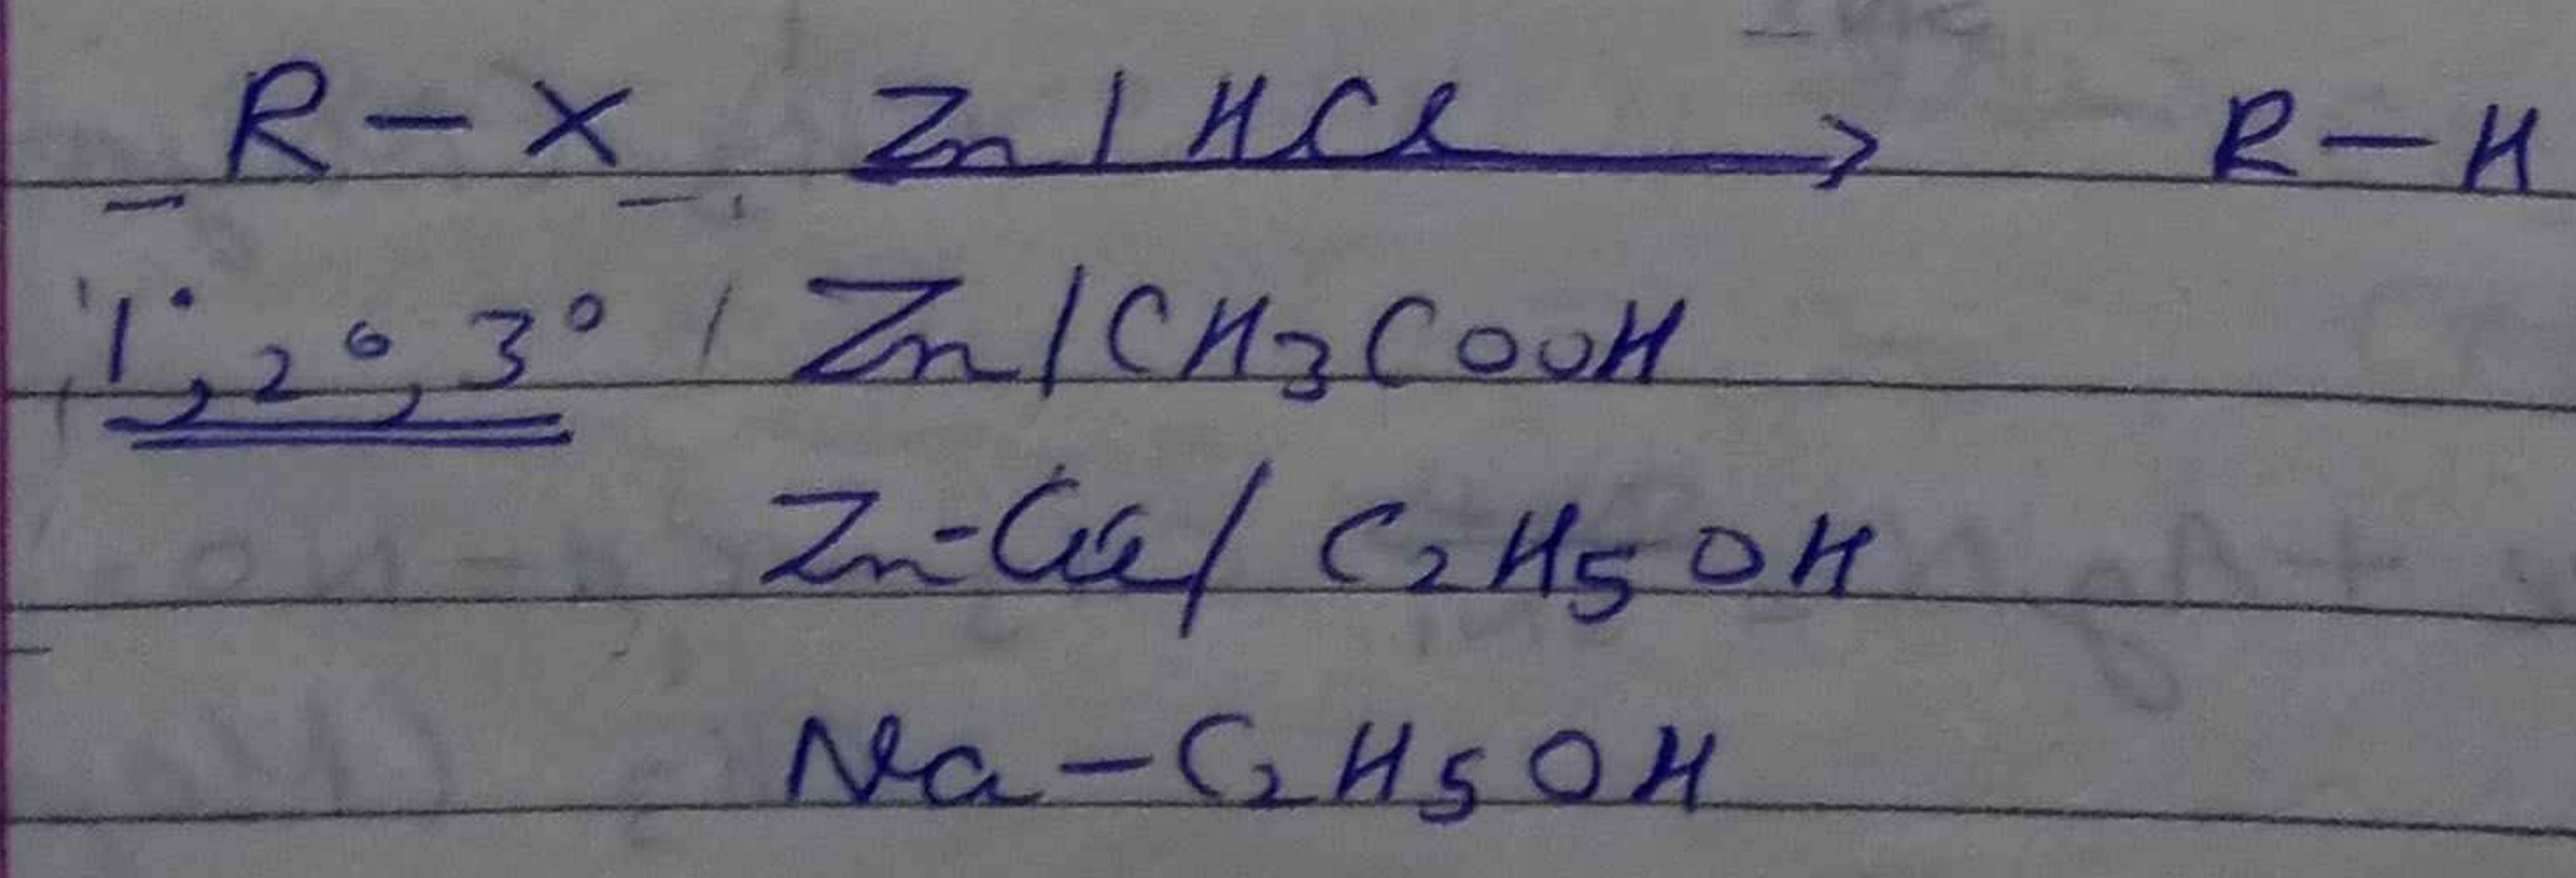 R – X Zn / HCl → R – H
1°, 2°, 3° Zn / CH3COOH
Zn-Cu / C2H5OH
Na – C2H5OH